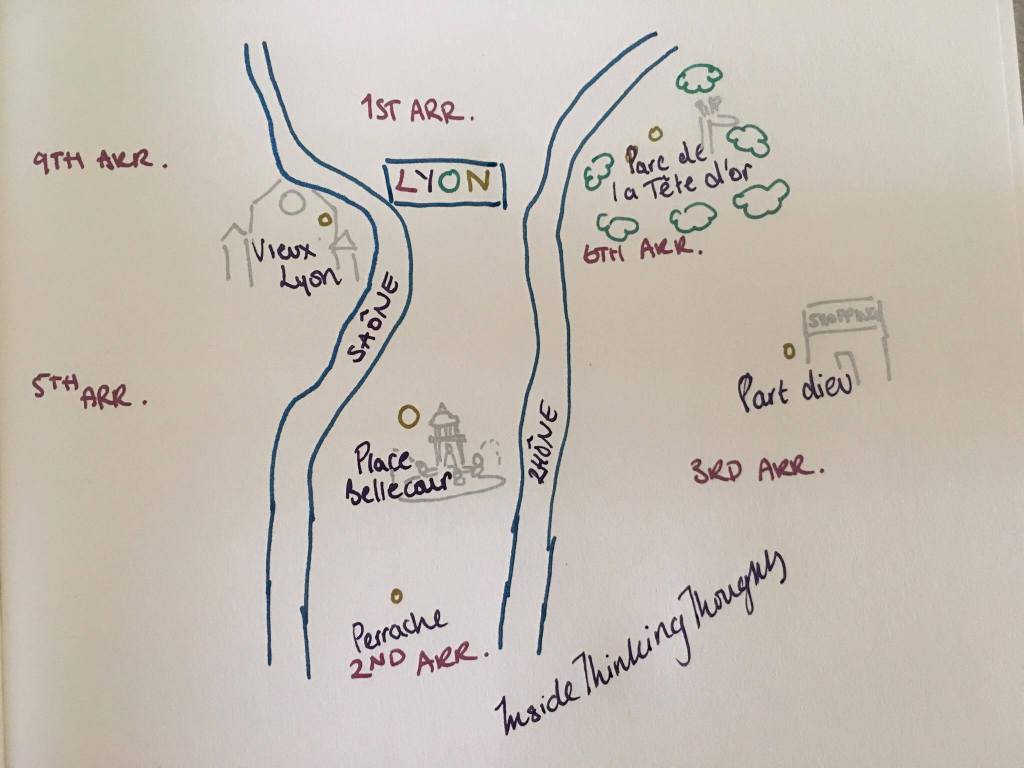 1ST ARR.
9TH ARR.
LYON
Parc de
la Tête d'or
6TH ARR.
Vieux
Lyon
SAÔNE
SHOPPING
Part dieu
5TH ARR.
Place
Bellecour
RHÔNE
3RD ARR.
Perrache
2ND ARR.
Inside Thinking Thoughts